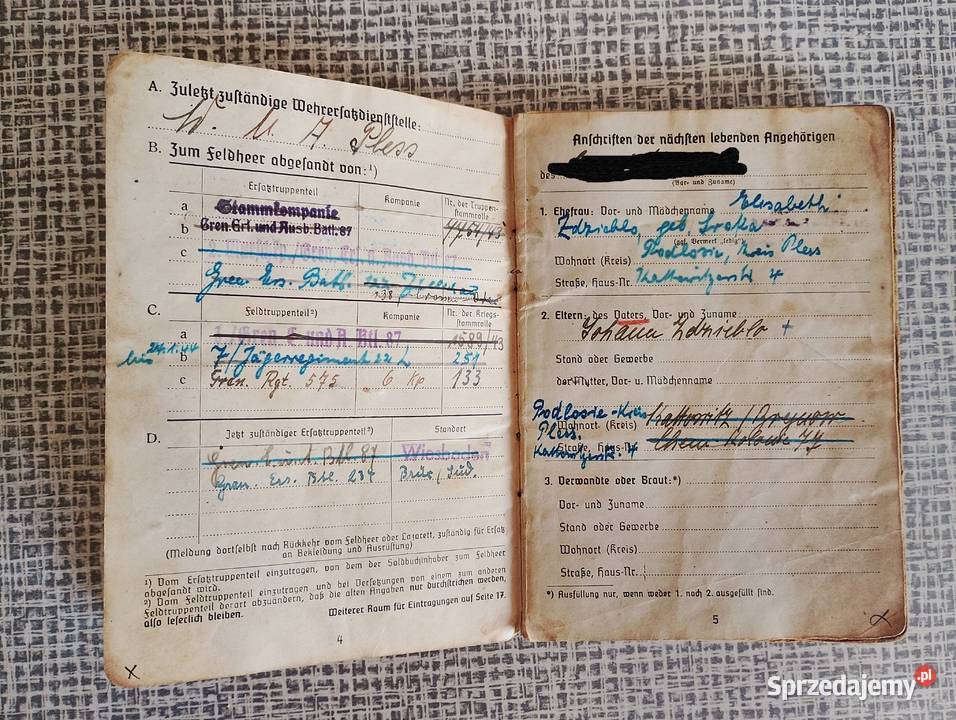 A. Zuletzt zuständige Wehrersatzdienststelle:
Pless
B. Zum Feldheer abgesandt von:¹)
Ersatztruppenteil
Kompanie
Nr. der Truppen-
stammrolle
a
Stammkompanie
b
Gren.Ers.und Ausb.Batl. 87
c
Gren. Ers. Batl.
C.
Feldtruppenteil²)
Kompanie
Nr. der Kriegs-
stammrolle
a
1./Gren. E. und A. Btl. 87
1589/43
bis
b
7/Jägerregiment 22 L
251
c
Gren. Rgt. 575
6 Kp
133
D.
Jetzt zuständiger Ersatztruppenteil²)
Standort
Gren. E. u. A. Btl. 87
Wiesbaden
Gren. Ers. Btl. 234
Brüx/Sud.
(Meldung dortselbst nach Rückkehr vom Feldheer oder Lazarett, zuständig für Ersatz
an Bekleidung und Ausrüstung)
¹) Vom Ersatztruppenteil einzutragen, von dem der Soldbuchinhaber zum Feldheer
abgesandt wird.
²) Vom Feldtruppenteil einzutragen und bei Versetzungen von einem zum anderen
Feldtruppenteil derart abzuändern, daß die alten Angaben nur durchstrichen werden,
also leserlich bleiben.
Weiterer Raum für Eintragungen auf Seite 17.
4
x
Anschriften der nächsten lebenden Angehörigen
des
(Vor- und Zuname)
1. Ehefrau: Vor- und Mädchenname Elisabeth
Zdzieblo, geb.
(ggf. Vermerk „ledig")
Wohnort (Kreis) Podlosie, Kreis Pless
Straße, Haus-Nr. Kattowitzerstr. 4
2. Eltern: des Vaters, Vor- und Zuname
Johann Zdzieblo +
Stand oder Gewerbe
der Mutter, Vor- u. Mädchenname
Podlosie - Kreis
Wohnort (Kreis) Kattowitz /
Pless.
Straße, Haus-Nr.
Kattowitzerstr. 4
3. Verwandte oder Braut:*)
Vor- und Zuname
Stand oder Gewerbe
Wohnort (Kreis)
Straße, Haus-Nr.
*) Ausfüllung nur, wenn weder 1. noch 2. ausgefüllt sind.
5
x
Sprzedajemy.pl